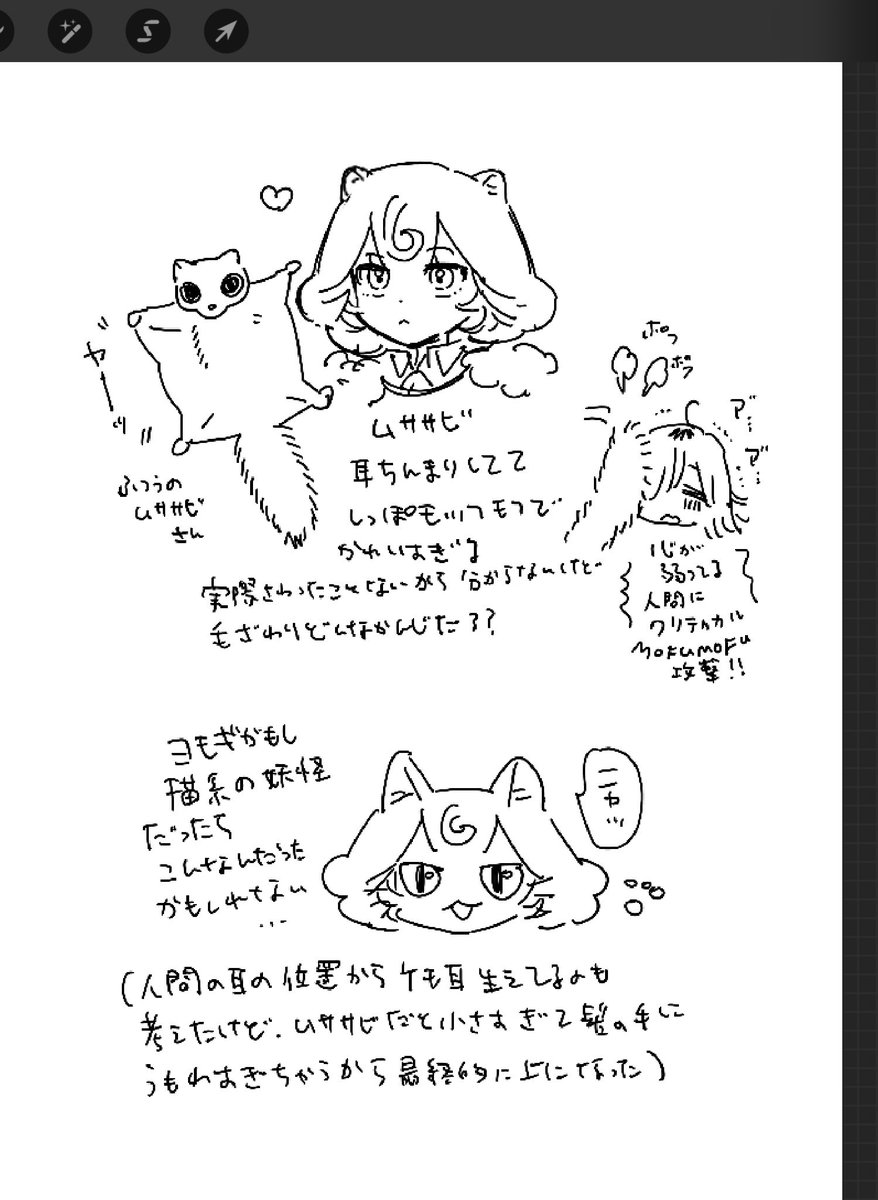 ヤーッ!!
ふつうの
ムササビ
さん
ムササビ
耳ちんまりしてて
しっぽモッフモフで
かわいすぎる
実際さわったことないから分からないけど
毛ざわりどんなかんじだろ??
ポフ
ポフ
ア゛…
ア゛…
心が
弱ってる
人間に
クリティカル
MOFUMOFU
攻撃!!
ヨモギがもし
猫系の妖怪
だったら
こんなんだった
かもしれない
…
ニャ…
(人間の耳の位置からケモ耳生えてるのも
考えたけど、ムササビだと小さすぎて髪の毛に
うもれすぎちゃうから最終的に上になった)